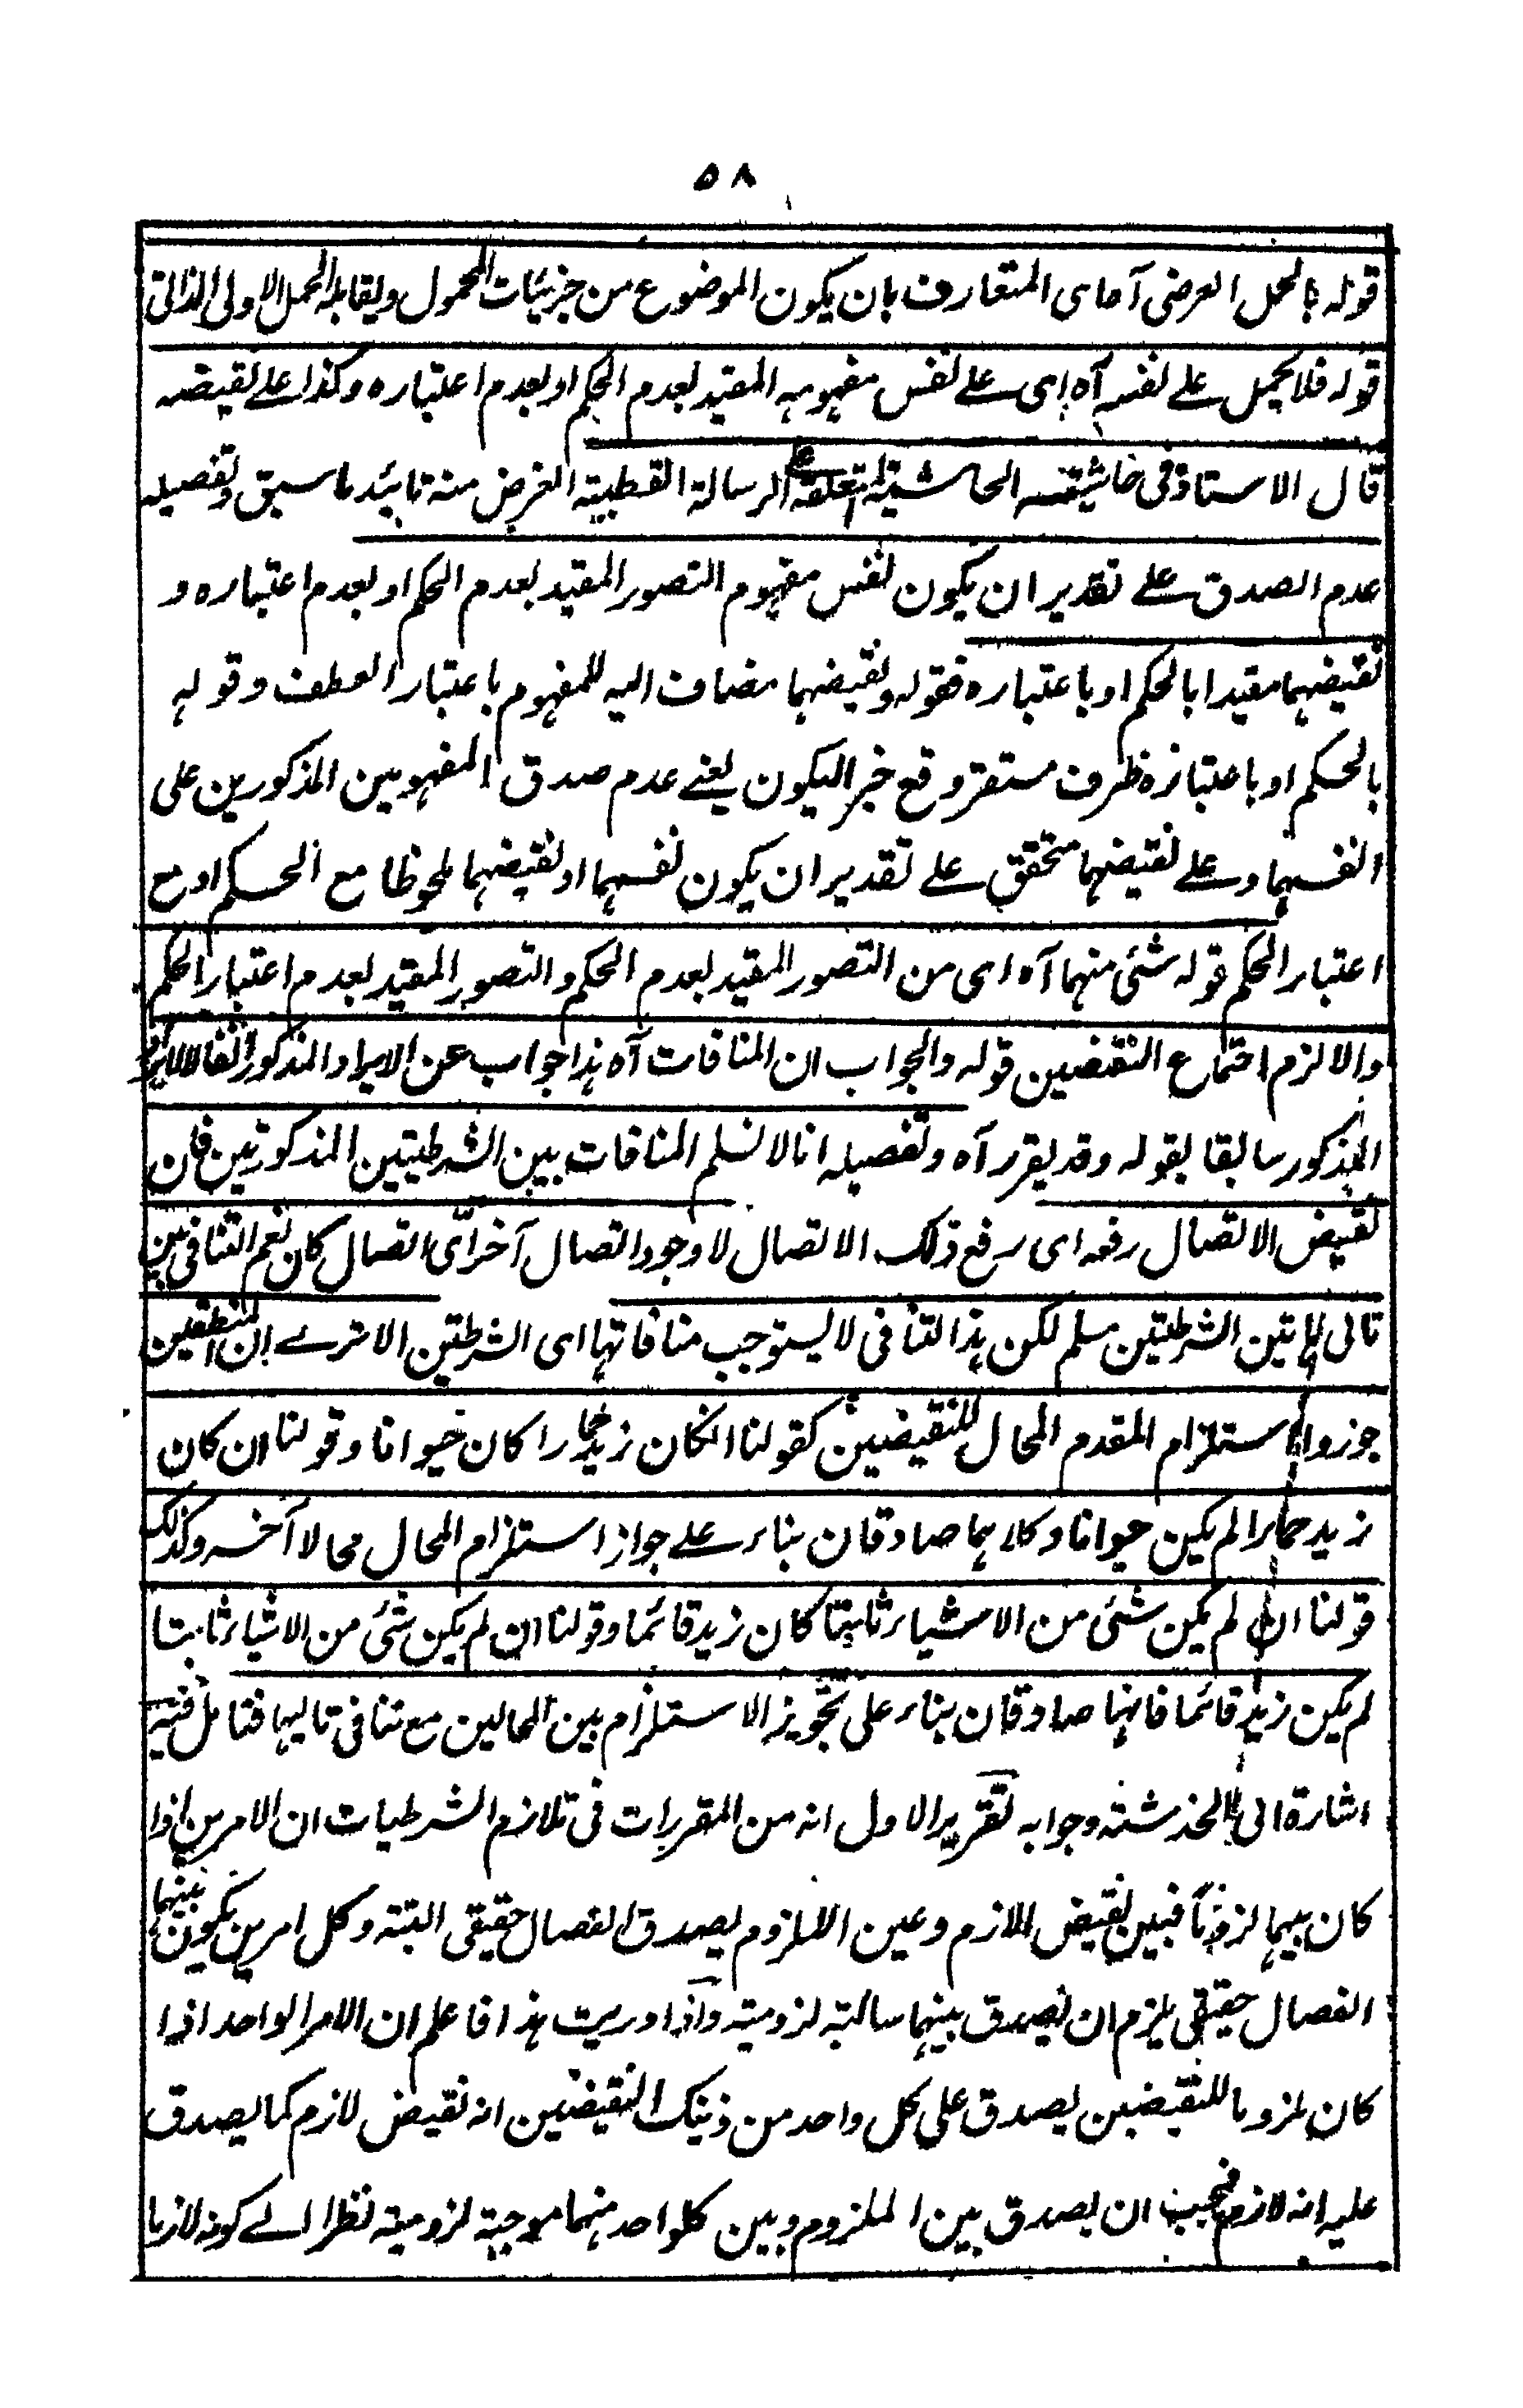 ٥٨
قوله بالحمل العرضی آه ای المتعارف بان یکون الموضوع من جزئیات المحمول ویقابله الحمل الاولی الذاتی
قوله فلا یحمل علے نفسه آه ای علے نفس مفهومه المقید بعدم الحکم او بعدم اعتباره وکذا علے نقیضه
قال الاستاذ فی حاشیته الحاشیة المتعلقة علی الرسالة القطبیة الغرض منه تائید ما سبق وتفصیله
عدم الصدق علے تقدیر ان یکون نفس مفهوم التصور المقید بعدم الحکم او بعدم اعتباره و
نقیضهما مقیدا بالحکم او باعتباره فقوله ونقیضهما مضاف الیه للمفهوم باعتبار العطف وقوله
بالحکم او باعتباره ظرف مستقر وقع خبر الیکون یعنے عدم صدق المفهومین المذکورین علی
انفسهما وعلے نقیضهما متحقق علے تقدیر ان یکون نفسهما او نقیضهما ملحوظا مع الحکم او مع
اعتبار الحکم قوله شئی منهما آه ای من التصور المقید بعدم الحکم والتصور المقید بعدم اعتبار الحکم
والا لزم اجتماع النقضین قوله والجواب ان المنافات آه هذا جواب عن الایراد المذکور آنفا لا الایراد
المذکور سابقا بقوله وقد یقرر آه وتفصیله انا لا نسلم المنافات بین الشرطیتین المذکورتین فان
نقیض الاتصال رفعه ای رفع ذلک الاتصال لا وجود اتصال آخر ای اتصال کان نعم التنافی بین
تالی هاتین الشرطیتین مسلم لکن هذا التنافی لا یستوجب منافاتها ای الشرطتین الا ترے ان المنطقین
جوزوا استلزام المقدم المحال للنقیضین کقولنا انکان زید حمارا کان حیوانا وقولنا ان کان
زید حمارا لم یکن حیوانا وکلاهما صادقان بناء علے جواز استلزام المحال محالا آخر وکذلک
قولنا ان لم یکن شئی من الاشیاء ثابتا کان زید قائما وقولنا ان لم یکن شئی من الاشیاء ثابتا
لم یکن زید قائما فانهما صادقان بناء علی تجویز الاستلزام بین المحالین مع تنافی تالیهما فتامل فیه
اشارة الی الخدشة وجوابه تقریر الاول انه من المقررات فی تلازم الشرطیات ان الامرین اذا
کان بینهما لزوما فبین نقیض اللازم وعین الملزوم یصدق انفصال حقیقی البتة وکل امرین یکون بینهما
انفصال حقیقی یلزم ان یصدق بینهما سالبة لزومیة واذا دریت هذا فاعلم ان الامر الواحد اذا
کان ملزوما للنقیضین یصدق علی کل واحد من ذینک النقیضین انه نقیض لازم کما یصدق
علیه انه لازم فیجب ان یصدق بین الملزوم وبین کلواحد منهما موجبة لزومیة نظرا الے کونه لازما